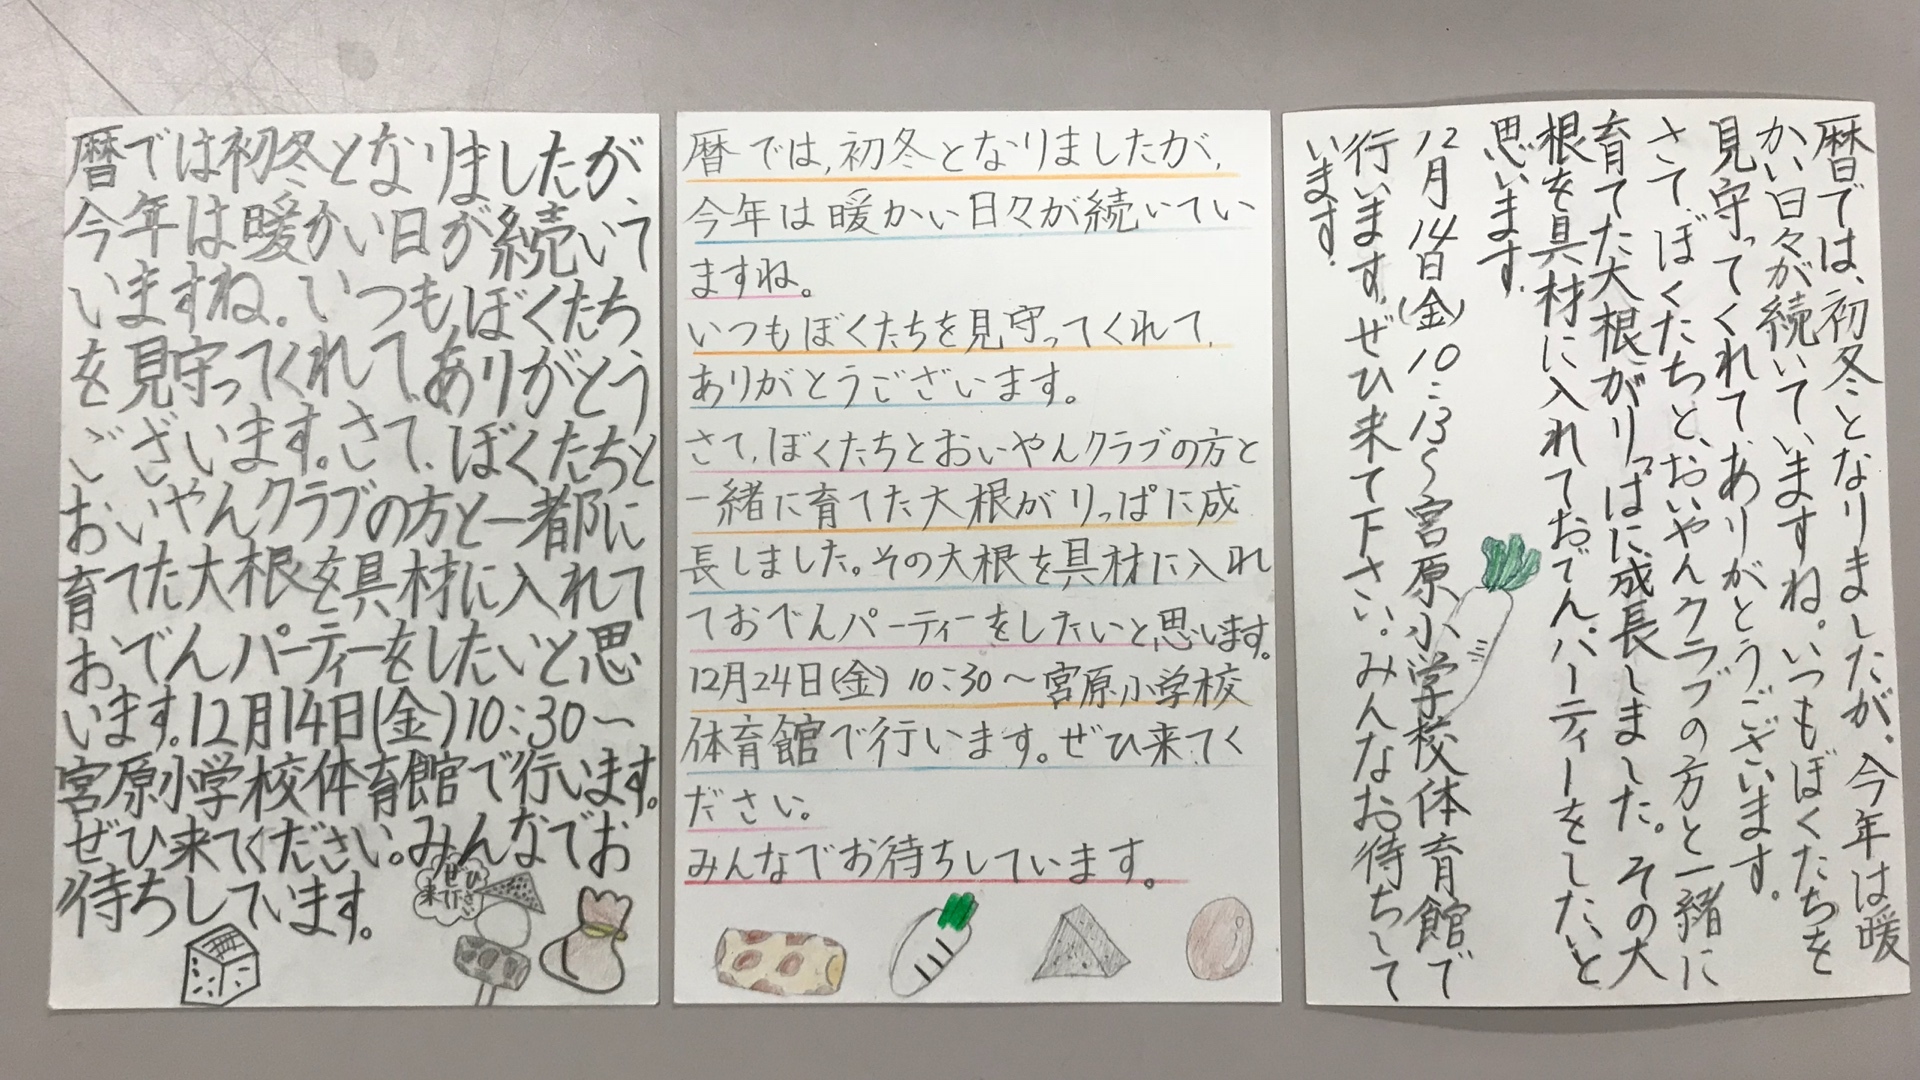 暦では初冬となりましたが
今年は暖かい日が続いて
いますね。いつも、ぼくたち
を見守ってくれて、ありがとう
ございます。さて、ぼくたちと
おいやんクラブの方と一都に
育てた大根を具材に入れて
おでんパーティーをしたいと思
います。12月14日(金)10:30〜
宮原小学校体育館で行います。
ぜひ来てください。みんなでお
待ちしています。
暦では,初冬となりましたが,
今年は暖かい日々が続いてい
ますね。
いつもぼくたちを見守ってくれて,
ありがとうございます。
さて,ぼくたちとおいやんクラブの方と
一緒に育てた大根がりっぱに成
長しました。その大根を具材に入れ
ておでんパーティーをしたいと思います。
12月24日(金) 10:30〜宮原小学校
体育館で行います。ぜひ来てく
ださい。
みんなでお待ちしています。
暦では、初冬となりましたが、今年は暖
かい日々が続いていますね。いつもぼくたちを
見守ってくれて、ありがとうございます。
さて、ぼくたちと、おいやんクラブの方と一緒に
育てた大根がりっぱに成長しました。その大
根を具材に入れておでんパーティーをしたいと
思います。
12月14日(金)10:13〜宮原小学校体育館で
行います。ぜひ来て下さい。みんなお待ちして
います。